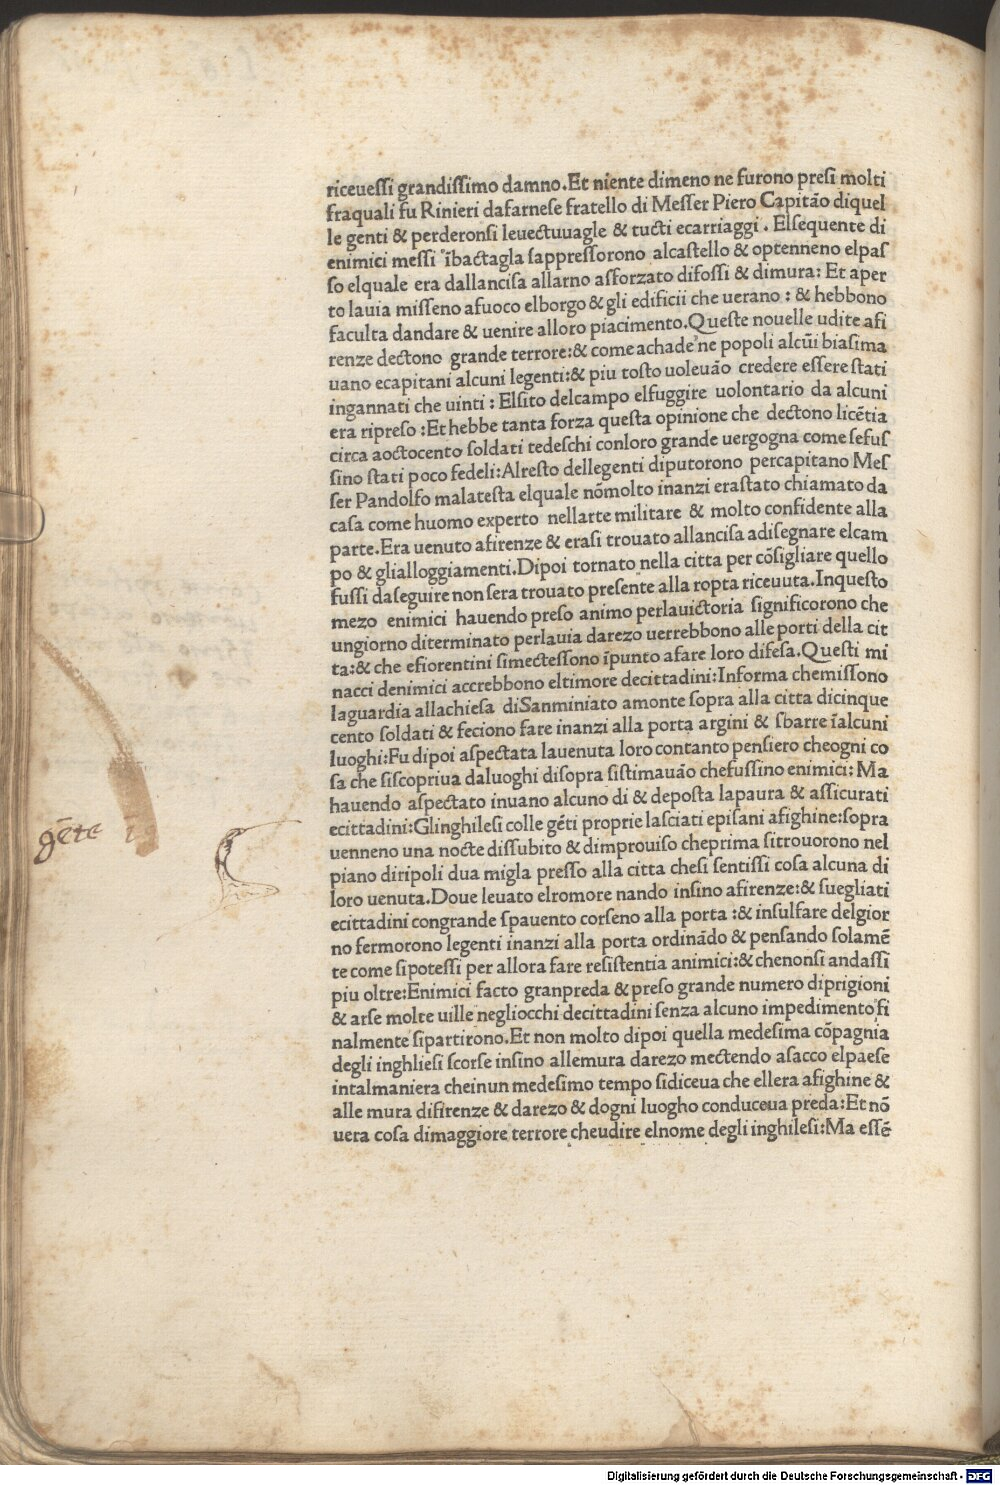 riceuessi grandissimo damno.Et niente dimeno ne furono presi molti
fraquali fu Rinieri dafarnese fratello di Messer Piero Capitāo diquel
le genti & perderonsi leuectuuagle & tucti ecarriaggi . Elsequente di
enimici messi ībactagla sappressorono alcastello & optenneno elpas
so elquale era dallancisa allarno asforzato difossi & dimura: Et aper
to lauia misseno afuoco elborgo & gli edificii che uerano : & hebbono
faculta dandare & uenire alloro piacimento.Queste nouelle udite afi
renze dectono grande terrore:& come achade ne popoli alcūi biasima
uano ecapitani alcuni legenti:& piu tosto uoleuāo credere essere stati
ingannati che uinti : Elsito delcampo elfuggire uolontario da alcuni
era ripreso :Et hebbe tanta forza questa opinione che dectono licētia
circa aoctocento soldati tedeschi conloro grande uergogna come sefus
sino stati poco fedeli:Alresto dellegenti diputorono percapitano Mes
ser Pandolfo malatesta elquale nōmolto inanzi erastato chiamato da
casa come huomo experto nellarte militare & molto confidente alla
parte.Era uenuto afirenze & erasi trouato allancisa adisegnare elcam
po & glialloggiamenti.Dipoi tornato nella citta per cōsigliare quello
fussi daseguire non sera trouato presente alla ropta riceuuta.Inquesto
mezo enimici hauendo preso animo perlauictoria significorono che
ungiorno diterminato perlauia darezo uerrebbono alle porti della cit
ta:& che efiorentini simectessono īpunto afare loro difesa.Questi mi
nacci denimici accrebbono eltimore decittadini:Informa chemissono
laguardia allachiesa diSanminiato amonte sopra alla citta dicinque
cento soldati & feciono fare inanzi alla porta argini & sbarre īalcuni
luoghi:Fu dipoi aspectata lauenuta loro contanto pensiero cheogni co
sa che siscopriua daluoghi disopra sistimauāo chefussino enimici: Ma
hauendo aspectato inuano alcuno di & deposta lapaura & assicurati
ecittadini:Glinghilesi colle gēti proprie lasciati episani afighine:sopra
uenneno una nocte dissubito & dimprouiso cheprima sitrouorono nel
piano diripoli dua migla presso alla citta chesi sentissi cosa alcuna di
loro uenuta.Doue leuato elromore nando insino afirenze:& suegliati
ecittadini congrande spauento corseno alla porta :& insulfare delgior
no fermorono legenti inanzi alla porta ordināndo & pensando solamē
te come sipotessi per allora fare resistentia animici:& chenonsi andassi
piu oltre:Enimici facto granpreda & preso grande numero diprigioni
& arse molte uille negliocchi decittadini senza alcuno impedimento fi
nalmente sipartirono.Et non molto dipoi quella medesima cōpagnia
degli inghliesi scorse insino allemura darezo mectendo asacco elpaese
intalmaniera cheinun medesimo tempo sidiceua che ellera afighine &
alle mura difirenze & darezo & dogni luogho conduceua preda:Et nō
uera cosa dimaggiore terrore cheudire elnome degli inghilesi:Ma essē
gēte
Digitalisierung gefördert durch die Deutsche Forschungsgemeinschaft - DFG